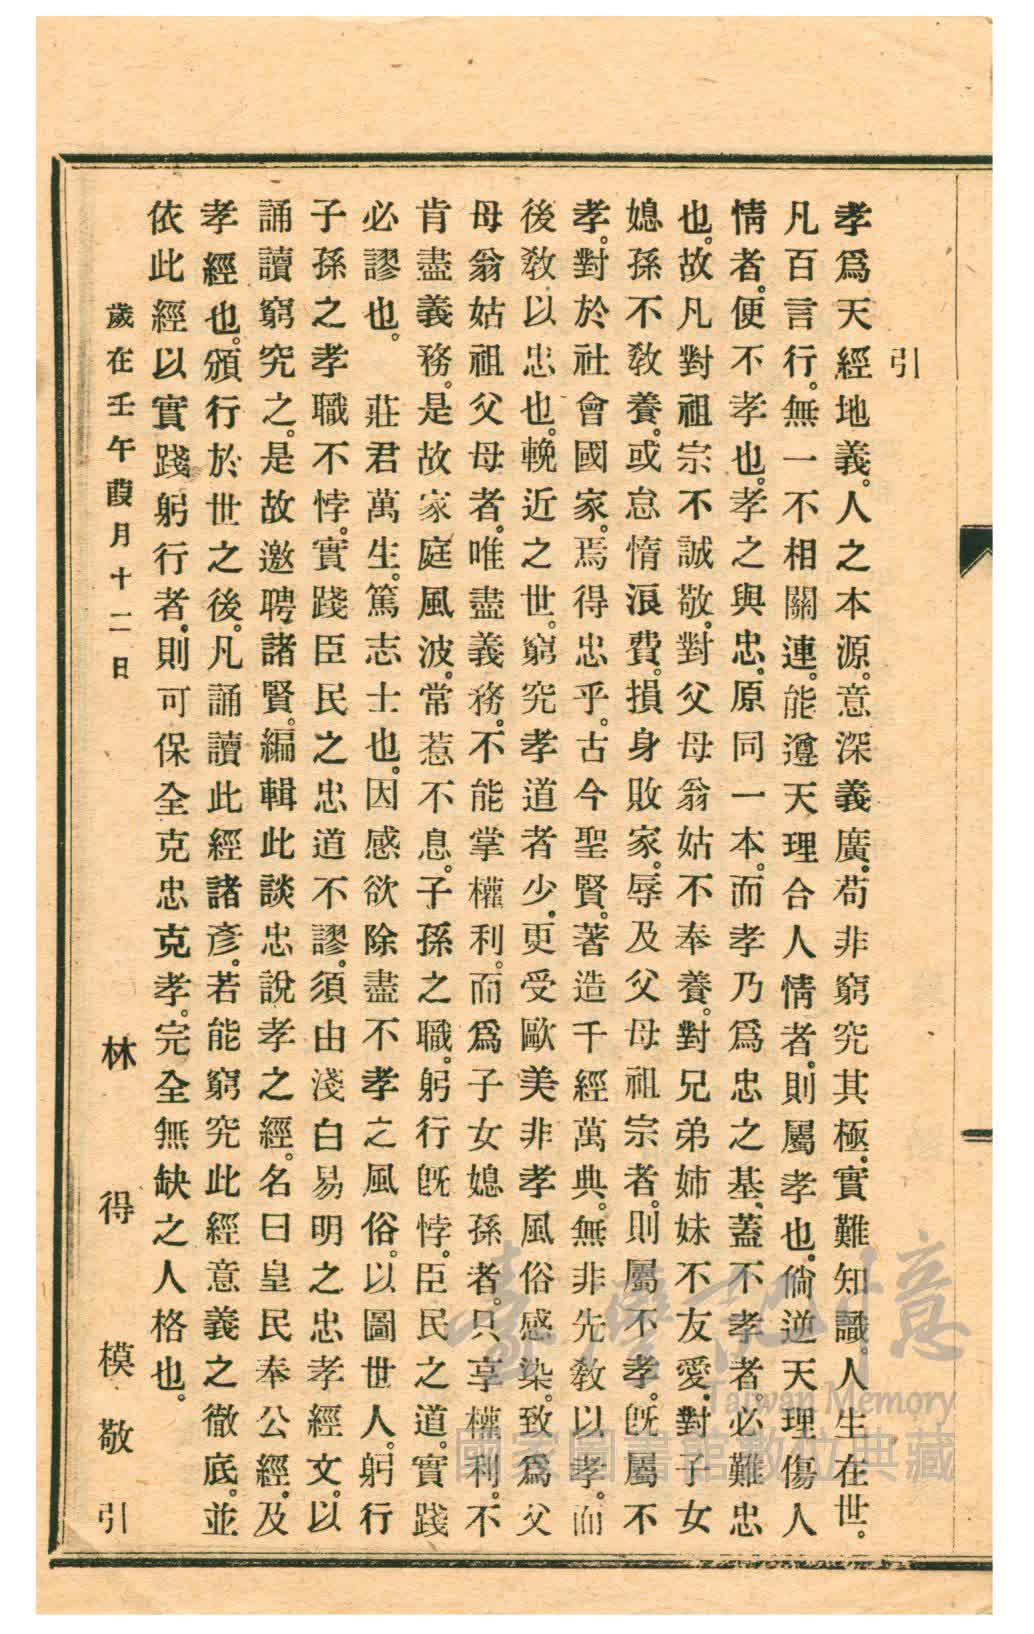 引
孝爲天經地義。人之本源。意深義廣。苟非窮究其極。實難知識。人生在世。
凡百言行。無一不相關連。能遵天理合人情者。則屬孝也。倘逆天理傷人
情者。便不孝也。孝之與忠。原同一本。而孝乃爲忠之基。蓋不孝者。必難忠
也。故凡對祖宗不誠敬。對父母翁姑不奉養。對兄弟姉妹不友愛。對子女
媳孫不敎養。或怠惰浪費。損身敗家。辱及父母祖宗者。則屬不孝。旣屬不
孝。對於社會國家。焉得忠乎。古今聖賢。著造千經萬典。無非先敎以孝。而
後敎以忠也。輓近之世。窮究孝道者少。更受歐美非孝風俗感染。致爲父
母翁姑祖父母者。唯盡義務。不能掌權利。而爲子女媳孫者。只享權利。不
肯盡義務。是故家庭風波。常惹不息。子孫之職。躬行旣悖。臣民之道。實踐
必謬也。　莊君萬生。篤志士也。因感欲除盡不孝之風俗。以圖世人。躬行
子孫之孝職不悖。實踐臣民之忠道不謬。須由淺白易明之忠孝經文。以
誦讀窮究之。是故邀聘諸賢。編輯此談忠說孝之經。名曰皇民奉公經。及
孝經也。頒行於世之後。凡誦讀此經諸彥。若能窮究此經意義之徹底。並
依此經以實踐躬行者。則可保全克忠克孝。完全無缺之人格也。
歲在壬午葭月十二日
林得模敬引
臺灣記憶
Taiwan Memory
國家圖書館數位典藏